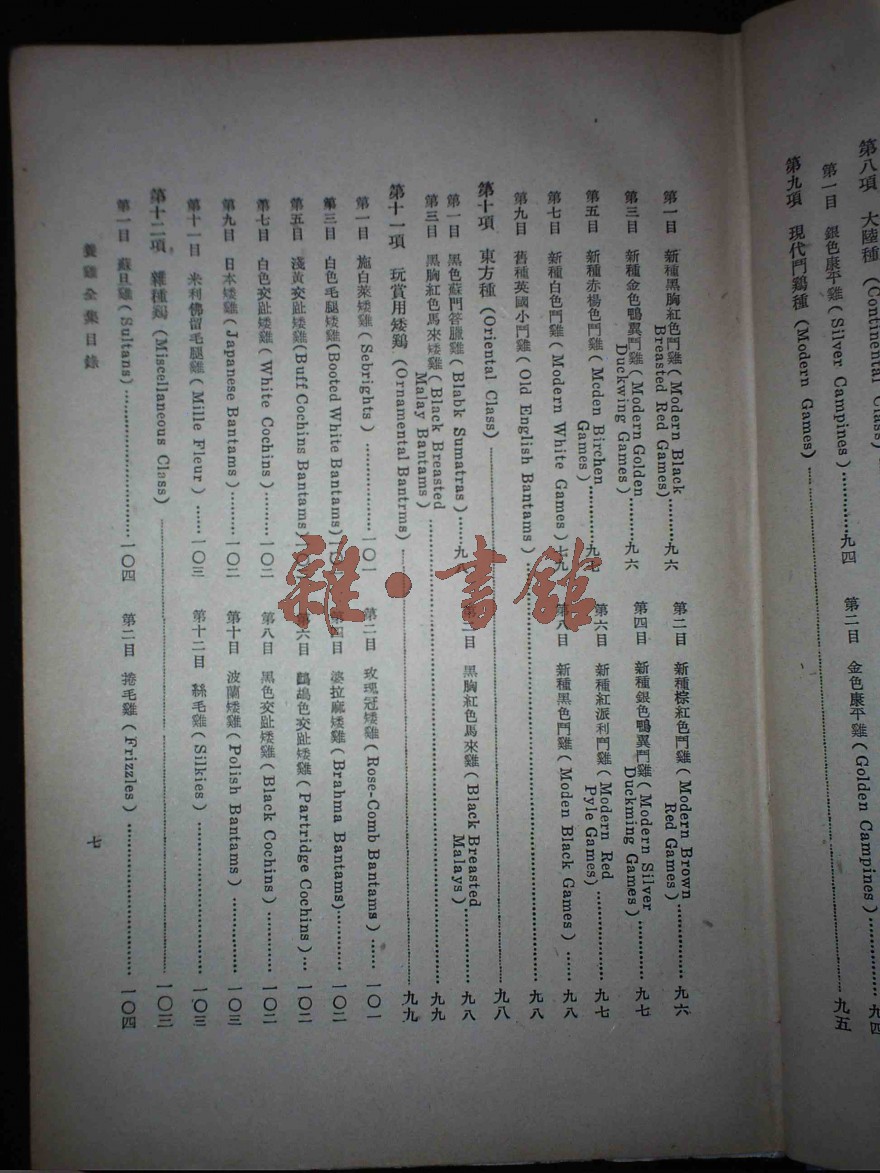 第八項　大陸種　(Continental Class)
第一目　銀色康平雞(Silver Campines)…………九四　第二目　金色康平雞(Golden Campines)…………九四
第九項　現代鬥鷄種　(Modern Games)…………九五
第一目　新種黑胸紅色鬥雞(Modern Black Breasted Red Games)………九六　第二目　新種棕紅色鬥雞(Modern Brown Red Games)…………九六
第三目　新種金色鴨翼鬥雞(Modern Golden Duckwing Games)………九六　第四目　新種銀色鴨翼鬥雞(Modern Silver Duckming Games)…………九七
第五目　新種赤楊色鬥雞(Mcden Birchen Games)…………九七　第六目　新種紅派利鬥雞(Modern Red Pyle Games)…………九七
第七目　新種白色鬥雞(Modern White Games)七九　第八目　新種黑色鬥雞(Moden Black Games)……九八
第九目　舊種英國小鬥雞(Old English Bantams)…………九八
第十項　東方種　(Oriental Class)…………九八
第一目　黑色蘇門答臘雞(Blabk Sumatras)……九八　第二目　黑胸紅色馬來雞(Black Breasted Malays)…………九八
第三目　黑胸紅色馬來矮雞(Black Breasted Malay Bantams)…………九九
第十一項　玩賞用矮鷄　(Ornamental Bantrms)…………九九
第一目　施白萊矮雞(Sebrights)…………一〇一　第二目　玫瑰冠矮雞(Rose-Comb Bantams)……一〇一
第三目　白色毛腿矮雞(Booted White Bantams)一〇　第四目　婆拉麻矮雞(Brahma Bantams)…………一〇二
第五目　淺黃交趾矮雞(Buff Cochins Bantams)一〇　第六目　鷓鴣色交趾矮雞(Partridge Cochins)…一〇二
第七目　白色交趾矮雞(White Cochins)………一〇二　第八目　黑色交趾矮雞(Black Cochins)…………一〇二
第九目　日本矮雞(Japanese Bantams)………一〇二　第十目　波蘭矮雞(Polish Bantams)…………一〇三
第十一目　米利佛留毛腿雞(Mille Fleur)……一〇三　第十二目　絲毛雞(Silkies)…………一〇三
第十二項　雜種鷄　(Miscellaneous Class)…………一〇三
第一目　蘇旦雞(Sultans)…………一〇四　第二目　捲毛雞(Frizzles)…………一〇四
養雞全集目錄　七
雜·書館